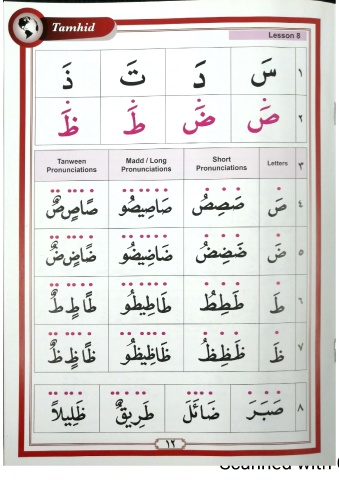 Tamhid
Lesson 8
١ سَ دَ تَ ذَ
٢ صَ ضَ طَ ظَ
٣ Letters Short Pronunciations Madd / Long Pronunciations Tanween Pronunciations
٤ صَ صَصِصُ صَاصِيصُو صًاصٍصٌ
٥ ضَ ضَضِضُ ضَاضِيضُو ضًاضٍضٌ
٦ طَ طَطِطُ طَاطِيطُو طًاطٍطٌ
٧ ظَ ظَظِظُ ظَاظِيظُو ظًاظٍظٌ
٨ صَبَرَ ضَائَلَ طَرِيقٌ ظَلِيلاً
١٢
Scanned with